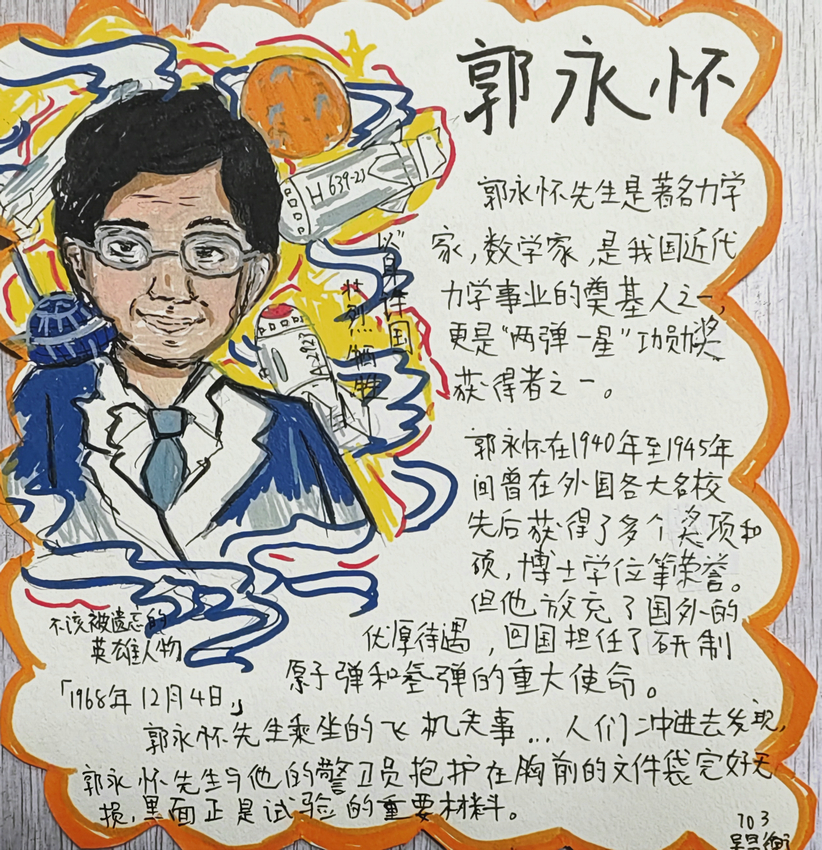 郭永怀
郭永怀先生是著名力学
家,数学家,是我国近代
力学事业的奠基人之一,
更是“两弹一星”功勋奖
获得者之一。
郭永怀在1940年至1945年
间曾在外国各大名校
先后获得了多个奖项和
硕,博士学位等荣誉。
但他放充了国外的
优厚待遇,回国担任了研制
原子弹和氢弹的重大使命。
「1968年12月4日」
郭永怀先生乘坐的飞机失事...人们冲进去发现,
郭永怀先生与他的警卫员抱护在胸前的文件袋完好无
损,里面正是试验的重要材料。
以身许国
壮烈牺牲
H639-23
不该被遗忘的
英雄人物
703